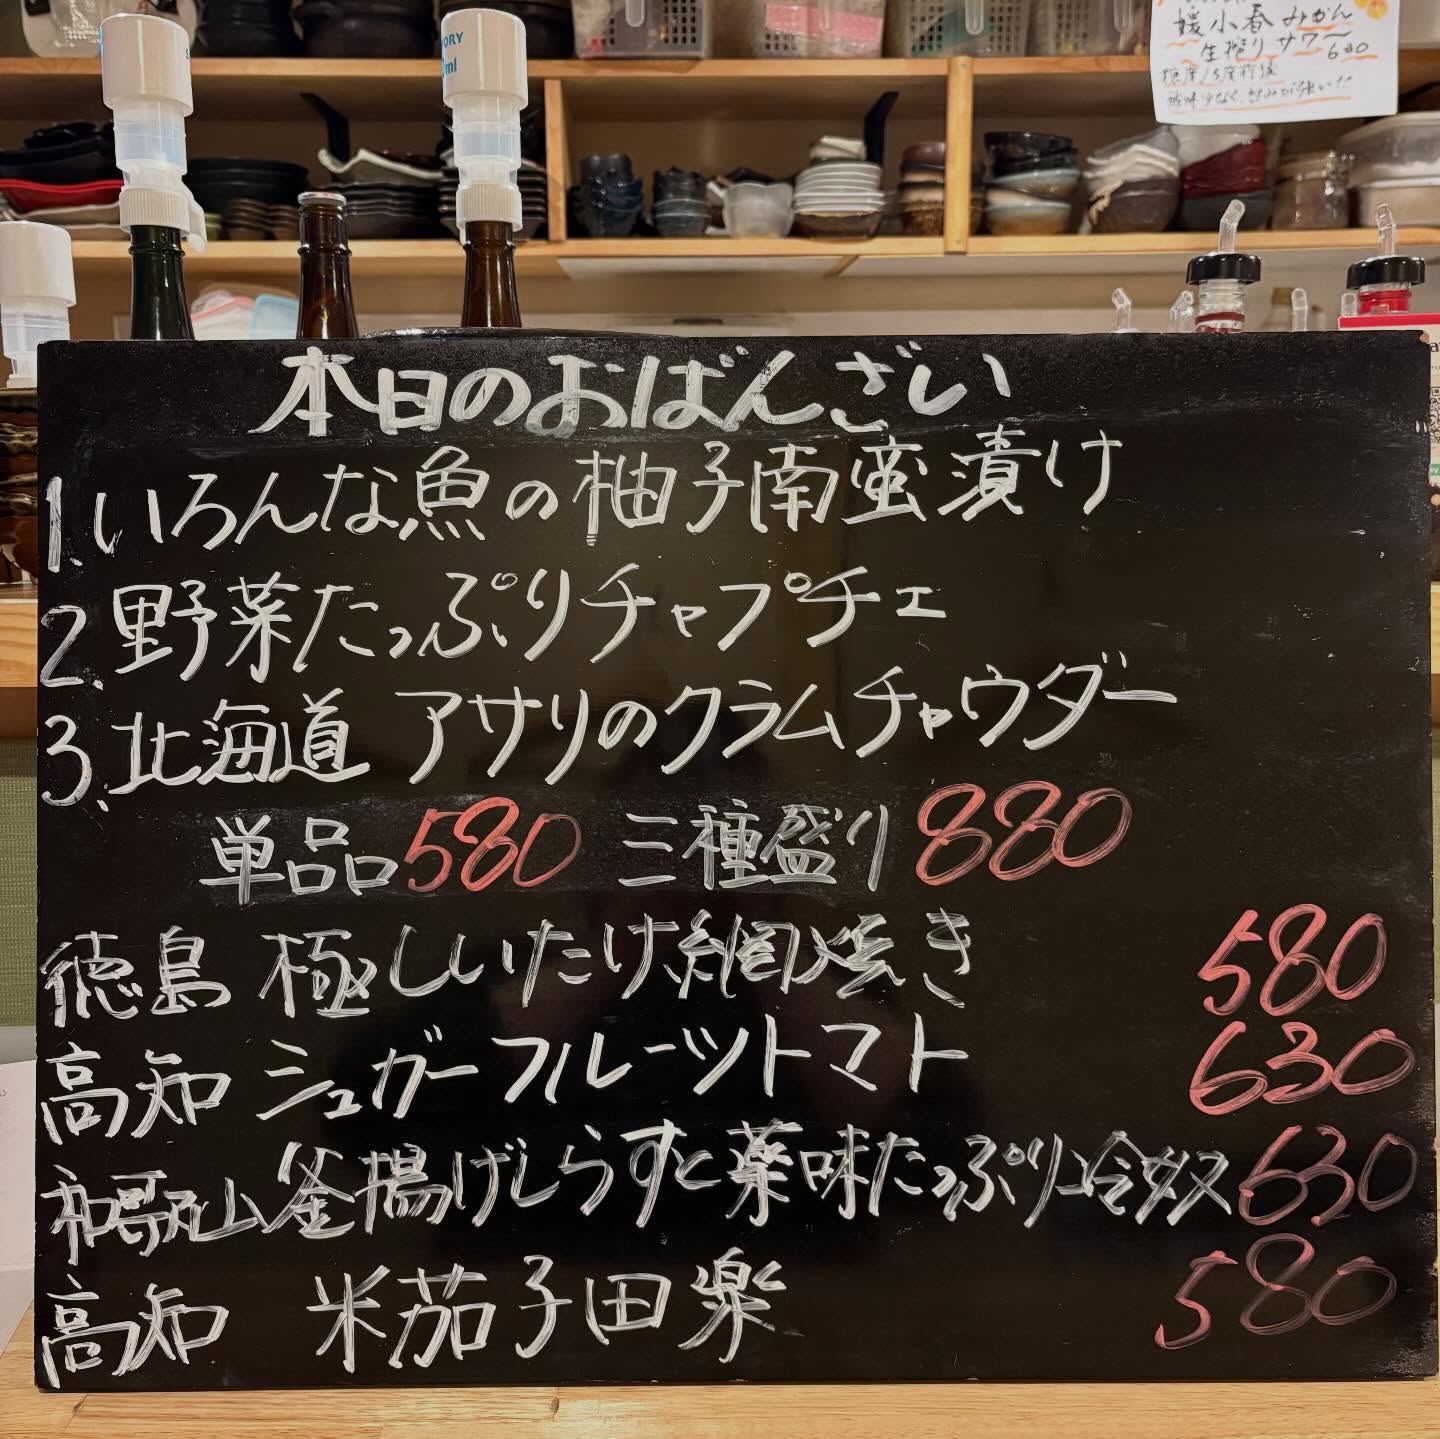 媛小春みかん
生搾りサワー
630
本日のおばんざい
1.いろんな魚の柚子南蛮漬け
2.野菜たっぷりチャプチェ
3.北海道 アサリのクラムチャウダー
単品580 三種盛り880
徳島 極しいたけ網焼き 580
高知 シュガーフルーツトマト 630
和歌山釜揚げしらすと薬味たっぷり冷奴 630
高知 米茄子田楽 580